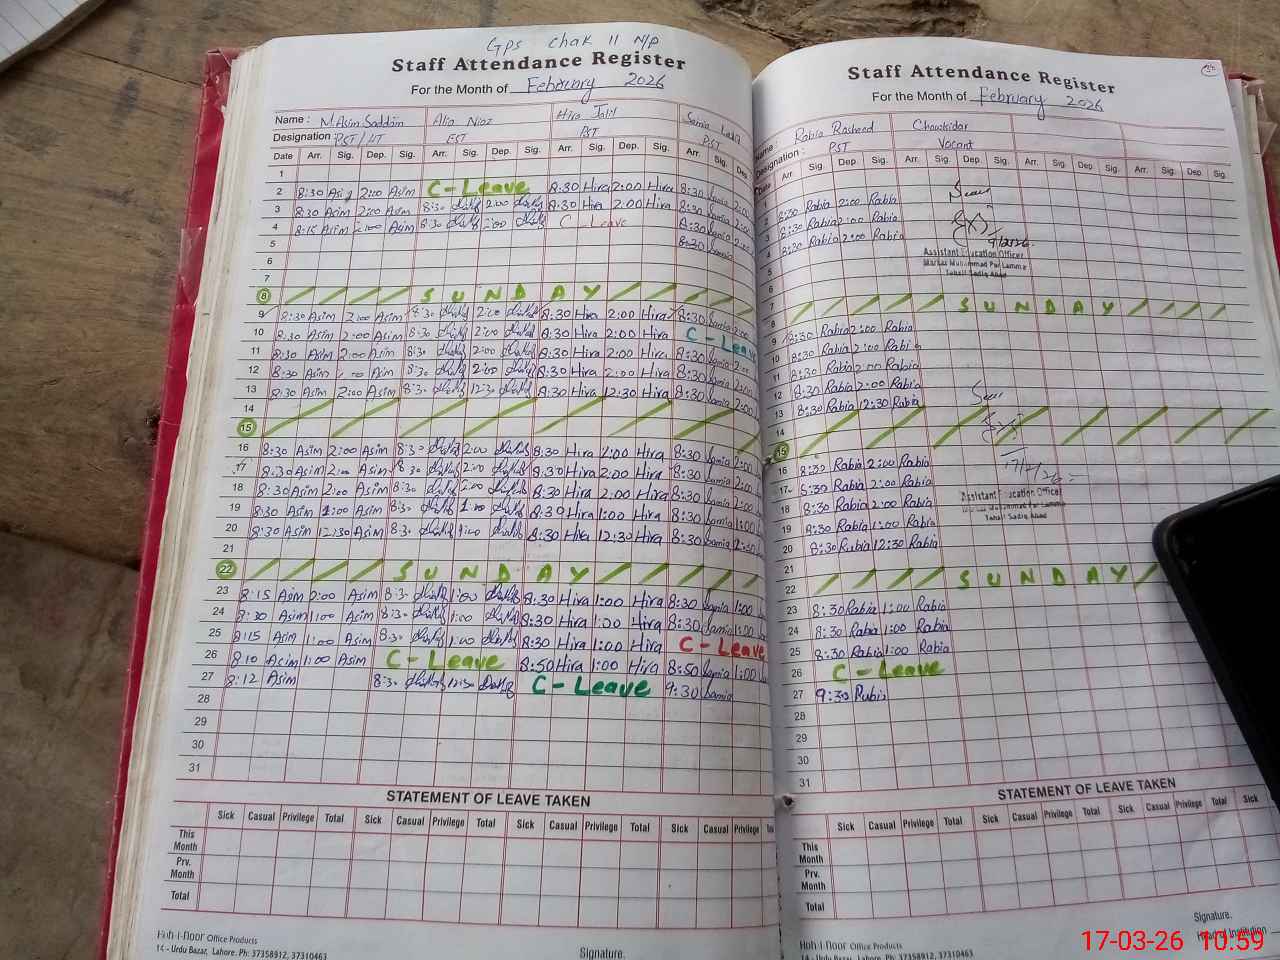 GPS Chak 11 N/P
Staff Attendance Register
For the Month of February 2026
Name : M.Asim Saddam Alia Niaz Hira Jalil Samia
Designation : PST/IT EST PST PST
Date Arr. Sig. Dep. Sig. Arr. Sig. Dep. Sig. Arr. Sig. Dep. Sig. Arr. Sig. Dep.
1
2 8:30 Asim 2:00 Asim C-Leave 8:30 Hira 2:00 Hira 8:30 Samia 2:00
3 8:30 Asim 2:00 Asim 8:30 2:00 8:30 Hira 2:00 Hira 8:30 Samia 2:00
4 8:15 Asim 2:00 Asim 8:30 2:00 C-Leave 8:30 Samia 2:00
5 8:30 Samia
6
7
8 SUNDAY
9 8:30 Asim 2:00 Asim 8:30 2:00 8:30 Hira 2:00 Hira 8:30 Samia 2:00
10 8:30 Asim 2:00 Asim 8:30 2:00 8:30 Hira 2:00 Hira C-Leave
11 8:30 Asim 2:00 Asim 8:30 2:00 8:30 Hira 2:00 Hira 8:30 Samia 2:00
12 8:30 Asim Asim 8:30 2:00 8:30 Hira 2:00 Hira 8:30 Samia 2:00
13 8:30 Asim 2:00 Asim 8:30 12:30 8:30 Hira 12:30 Hira 8:30 Samia 2:00
14
15
16 8:30 Asim 2:00 Asim 8:30 2:00 8:30 Hira 2:00 Hira 8:30 Samia 2:00
17 8:30 Asim 2:00 Asim 8:30 2:00 8:30 Hira 2:00 Hira 8:30 Samia 2:00
18 8:30 Asim 2:00 Asim 8:30 2:00 8:30 Hira 2:00 Hira 8:30 Samia 2:00
19 8:30 Asim 1:00 Asim 8:30 1:00 8:30 Hira 1:00 Hira 8:30 Samia 1:00
20 8:30 Asim 12:30 Asim 8:30 8:30 Hira 12:30 Hira 8:30 Samia
21
22 SUNDAY
23 8:15 Asim 2:00 Asim 8:30 1:00 8:30 Hira 1:00 Hira 8:30 Samia 1:00
24 8:30 Asim 1:00 Asim 8:30 1:00 8:30 Hira 1:00 Hira 8:30 Samia 1:00
25 8:15 Asim 1:00 Asim 8:30 1:00 8:30 Hira 1:00 Hira C-Leave
26 8:10 Asim 1:00 Asim C-Leave 8:50 Hira 1:00 Hira 8:50 Samia 1:00
27 8:12 Asim 8:30 12:30 C-Leave 9:30 Samia
28
29
30
31
STATEMENT OF LEAVE TAKEN
Sick Casual Privilege Total Sick Casual Privilege Total Sick Casual Privilege Total Sick Casual Privilege
This Month
Prv. Month
Total
Koh-i-Noor Office Products
14 - Urdu Bazar, Lahore. Ph: 37358912, 37310463
Signature.
Staff Attendance Register
For the Month of February 2026
Name : Rabia Rasheed Chowkidar
Designation : PST Vacant
Date Arr. Sig. Dep. Sig. Arr. Sig. Dep. Sig. Arr. Sig. Dep. Sig. Arr. Sig. Dep. Sig.
2 8:30 Rabia 2:00 Rabia
3 8:30 Rabia 2:00 Rabia
4 8:30 Rabia 2:00 Rabia
5
Assistant Education Officer
Markaz Muhammad Pur Lamma
Tehsil Sadiq Abad
6
7
SUNDAY
8
9 8:30 Rabia 2:00 Rabia
10 8:30 Rabia 2:00 Rabia
11 8:30 Rabia 2:00 Rabia
12 8:30 Rabia 2:00 Rabia
13 8:30 Rabia 12:30 Rabia
14
15
17/2/26
16 8:30 Rabia 2:00 Rabia
17 8:30 Rabia 2:00 Rabia
18 8:30 Rabia 2:00 Rabia
Assistant Education Officer
Markaz Muhammad Pur Lamma
Tehsil Sadiq Abad
19 8:30 Rabia 1:00 Rabia
20 8:30 Rabia 12:30 Rabia
21
22 SUNDAY
23 8:30 Rabia 1:00 Rabia
24 8:30 Rabia 1:00 Rabia
25 8:30 Rabia 1:00 Rabia
26 C-Leave
27 9:30 Rabia
28
29
30
31
STATEMENT OF LEAVE TAKEN
Sick Casual Privilege Total Sick Casual Privilege Total Sick Casual Privilege Total Sick
This Month
Prv. Month
Total
Koh-i-Noor Office Products
14 - Urdu Bazar, Lahore. Ph: 37358912, 37310463
Signature.
Head of Institution
17-03-26 10:59